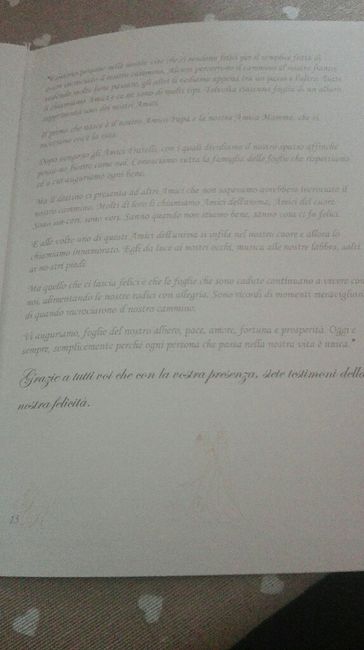 "Esistono persone nelle nostre vite che ci rendono felici per il semplice fatto di
avere incrociato il nostro cammino. Alcuni percorrono il cammino al nostro fianco,
vedendo molte lune passare, gli altri li vediamo appena tra un passo e l'altro. Tutti
li chiamiamo Amici e ce ne sono di molti tipi. Talvolta ciascuna foglia di un albero
rappresenta uno dei nostri Amici.
Il primo che nasce è il nostro Amico Papà e la nostra Amica Mamma, che ci
mostrano cos'è la vita.
Dopo vengono gli Amici Fratelli, con i quali dividiamo il nostro spazio affinché
possano fiorire come noi. Conosciamo tutta la famiglia delle foglie che rispettiamo
ed a cui auguriamo ogni bene.
Ma il destino ci presenta ad altri Amici che non sapevamo avrebbero incrociato il
nostro cammino. Molti di loro li chiamiamo Amici dell'anima, Amici del cuore.
Sono sinceri, sono veri. Sanno quando non stiamo bene, sanno cosa ci fa felici.
E alle volte uno di questi Amici dell'anima si infila nel nostro cuore e allora lo
chiamiamo innamorato. Egli da luce ai nostri occhi, musica alle nostre labbra, salti
ai nostri piedi.
Ma quello che ci lascia felici è che le foglie che sono cadute continuano a vivere con
noi, alimentando le nostre radici con allegria. Sono ricordi di momenti meravigliosi
di quando incrociarono il nostro cammino.
Vi auguriamo, foglie del nostro albero, pace, amore, fortuna e prosperità. Oggi e
sempre, semplicemente perchè ogni persona che passa nella nostra vita è unica."
Grazie a tutti voi che con la vostra presenza, siete testimoni della
nostra felicità.
15